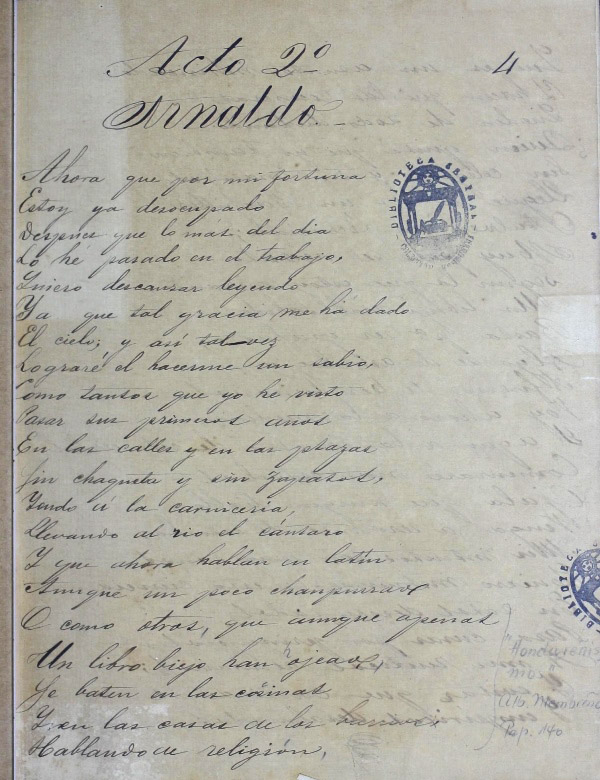 Acto 2º
4
Arnaldo.
Ahora que por mi fortuna
Estoy ya desocupado
Despues que lo mas del dia
Lo hé pasado en el trabajo,
Quiero descansar leyendo
Ya que tal gracia me há dado
El cielo; y así tal vez
Lograré el hacerme un sabio,
Como tantos que yo hé visto
Pasar sus primeros años
En las calles y en las plazas
Sin chaqueta y sin zapatos,
Yendo á la carniceria,
Llevando al rio el cántaro
Y que ahora hablan en latin
Aunque un poco chanpurrao
O como otros, que aunque apenas
Un libro biejo han hojeao,
Se baten en las cosinas
Y en las casas de los
Hablando de religión,
BIBLIOTECA GENERAL
BIBLIOTECA
Pap. 140